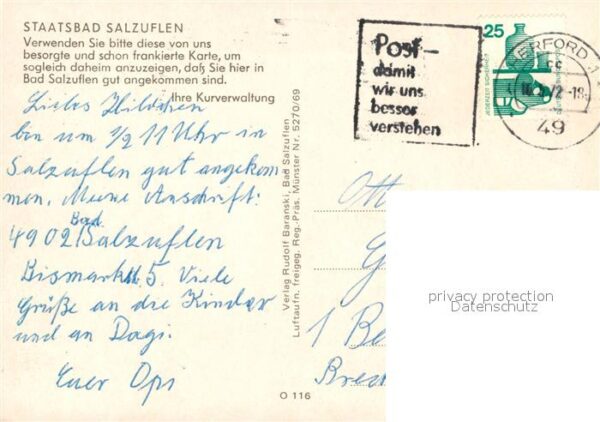 STAATSBAD SALZUFLEN
Verwenden Sie bitte diese von uns
besorgte und schon frankierte Karte, um
sogleich daheim anzuzeigen, daß Sie hier in
Bad Salzuflen gut angekommen sind.
Ihre Kurverwaltung
Liebes Hildchen
bin um 1/2 11 Uhr in
Salzuflen gut angekom
men. Meine Anschrift:
Bad
4902 Salzuflen
Bismarkst. 5. Viele
Grüße an die Kinder
und an Dagi.
Euer Opi
Verlag Rudolf Baranski, Bad Salzuflen
Luftaufn. freigeg. Reg.-Präs. Münster Nr. 5270/69
O 116
Post-
damit
wir uns
besser
verstehen
25
JEDERZEIT SICHERHEIT
HERFORD 1
cc
72-18
49
Ott
G
1 Be
privacy protection
Datenschutz